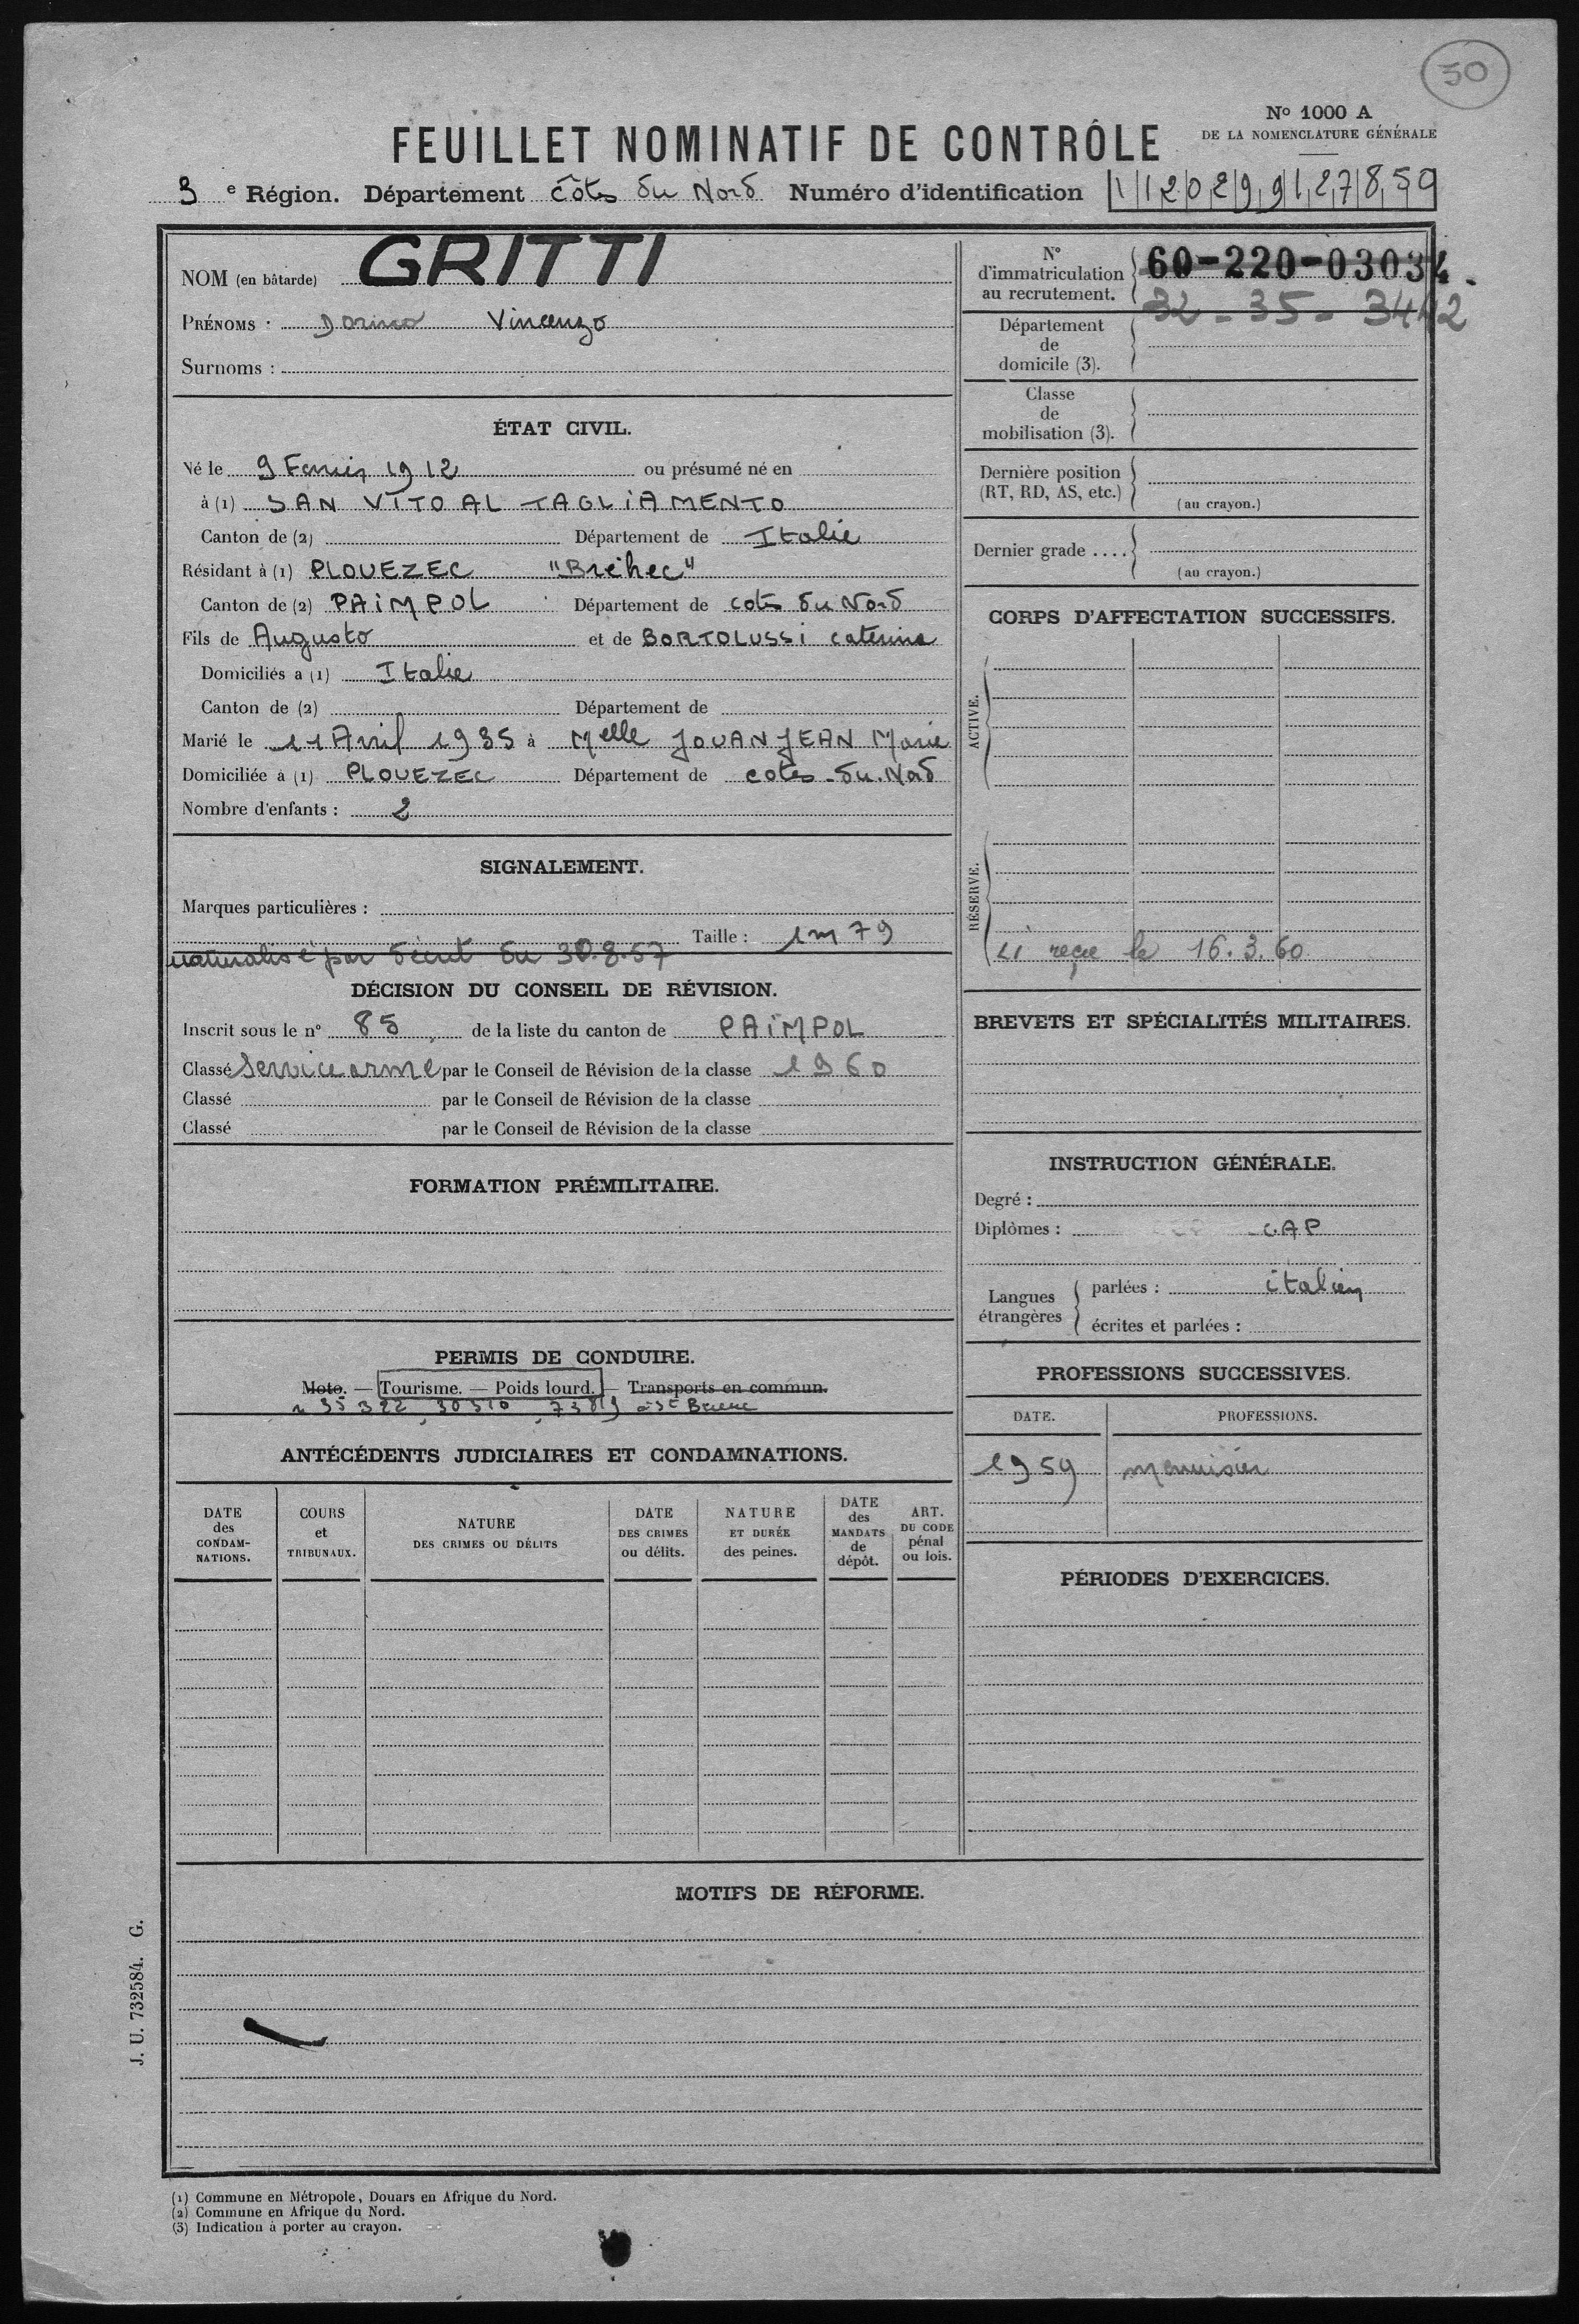 50
N° 1000 A
DE LA NOMENCLATURE GÉNÉRALE
FEUILLET NOMINATIF DE CONTRÔLE
3 e Région. Département Côtes du Nord Numéro d'identification 1120299127859
NOM (en bâtarde) GRITTI
PRÉNOMS : Vincenzo
Surnoms :
ÉTAT CIVIL.
Né le 9 1912 ou présumé né en
à (1) SAN VITO AL TAGLIAMENTO
Canton de (2) Département de Italie
Résidant à (1) PLOUEZEC "Bréhec"
Canton de (2) PAIMPOL Département de cotes du Nord
Fils de Augusto et de BORTOLUSSI caterina
Domiciliés à (1) Italie
Canton de (2) Département de
Marié le 11 Avril 1935 à Melle JOUANJEAN Marie
Domiciliée à (1) PLOUEZEC Département de cotes-du-Nord
Nombre d'enfants : 2
SIGNALEMENT.
Marques particulières :
Taille : 1m79
naturalisé par décret du 30.8.57
DÉCISION DU CONSEIL DE RÉVISION.
Inscrit sous le n° 85 de la liste du canton de PAIMPOL
Classé Service armé par le Conseil de Révision de la classe 1960
Classé par le Conseil de Révision de la classe
Classé par le Conseil de Révision de la classe
FORMATION PRÉMILITAIRE.
PERMIS DE CONDUIRE.
Moto. — Tourisme. — Poids lourd. — Transports en commun.
à St Brieuc
ANTÉCÉDENTS JUDICIAIRES ET CONDAMNATIONS.
DATE des CONDAMNATIONS.
COURS et TRIBUNAUX.
NATURE DES CRIMES OU DÉLITS
DATE DES CRIMES ou délits.
NATURE ET DURÉE des peines.
DATE des MANDATS de dépôt.
ART. DU CODE pénal ou lois.
N° d'immatriculation au recrutement. 60-220-03034.
32-35-3442
Département de domicile (3).
Classe de mobilisation (3).
Dernière position (RT, RD, AS, etc.)
(au crayon.)
Dernier grade ....
(au crayon.)
CORPS D'AFFECTATION SUCCESSIFS.
ACTIVE.
RÉSERVE.
LI reçu le 16.3.60
BREVETS ET SPÉCIALITÉS MILITAIRES.
INSTRUCTION GÉNÉRALE.
Degré :
Diplômes : CAP
Langues étrangères
parlées : italien
écrites et parlées :
PROFESSIONS SUCCESSIVES.
DATE. PROFESSIONS.
1959 menuisier
PÉRIODES D'EXERCICES.
MOTIFS DE RÉFORME.
J. U. 732584. G.
(1) Commune en Métropole, Douars en Afrique du Nord.
(2) Commune en Afrique du Nord.
(3) Indication à porter au crayon.